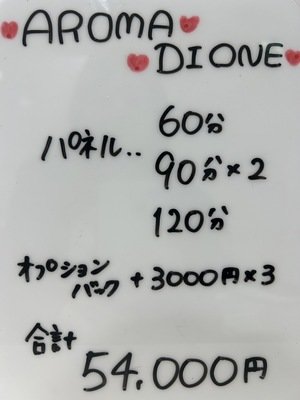 AROMA
DIONE
パネル.. 60分
90分×2
120分
オプション
バック +3000円×3
合計
54,000円